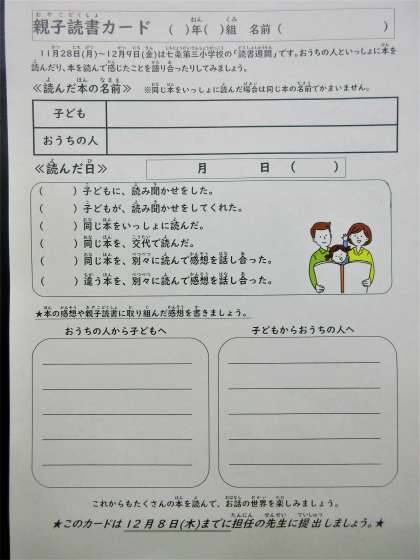 親子読書カード （　）年（　）組　名前（　　　　　　　　）
11月28日(月)～12月9日(金)は七条第三小学校の「読書週間」です。おうちの人といっしょに本を
読んだり、本を読んで感じたことを語り合ったりしてみましょう。
≪読んだ本の名前≫　※同じ本をいっしょに読んだ場合は同じ本の名前でかまいません。
子ども
おうちの人
≪読んだ日≫　　月　　　日　（　　）
（　　）子どもに、読み聞かせをした。
（　　）子どもが、読み聞かせをしてくれた。
（　　）同じ本をいっしょに読んだ。
（　　）同じ本を、交代で読んだ。
（　　）同じ本を、別々に読んで感想を話し合った。
（　　）違う本を、別々に読んで感想を話し合った。
★本の感想や親子読書に取り組んだ感想を書きましょう。
おうちの人から子どもへ　　子どもからおうちの人へ
これからもたくさんの本を読んで、お話の世界を楽しみましょう。
★このカードは12月8日(木)までに担任の先生に提出しましょう。★